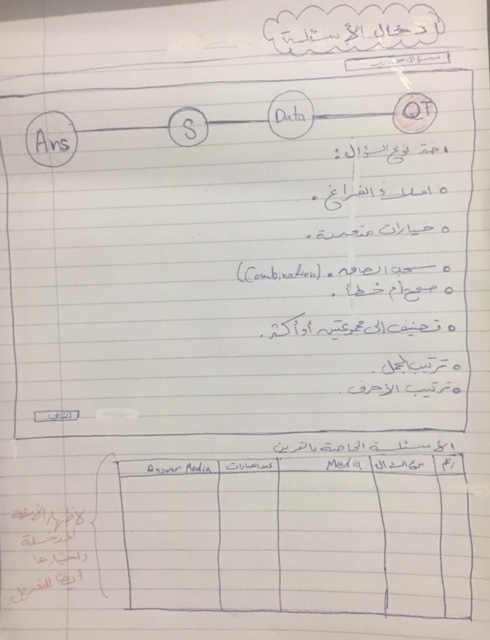 إدخال الأسئلة
QT
Data
S
Ans
حدد نوع السؤال:
املأ الفراغ.
خيارات متعددة.
سحب (Combination)
صح أم خطأ.
تصنيف إلى مجموعتين أو أكثر.
ترتيب الجمل.
ترتيب الأحرف.
التالي
الأسئلة الخاصة بالتمرين
رقم
نوع السؤال
Media
عدد الخيارات
Answer Media
لإظهار الأسئلة
المدخلة
واختيارها
أيضا للتعديل